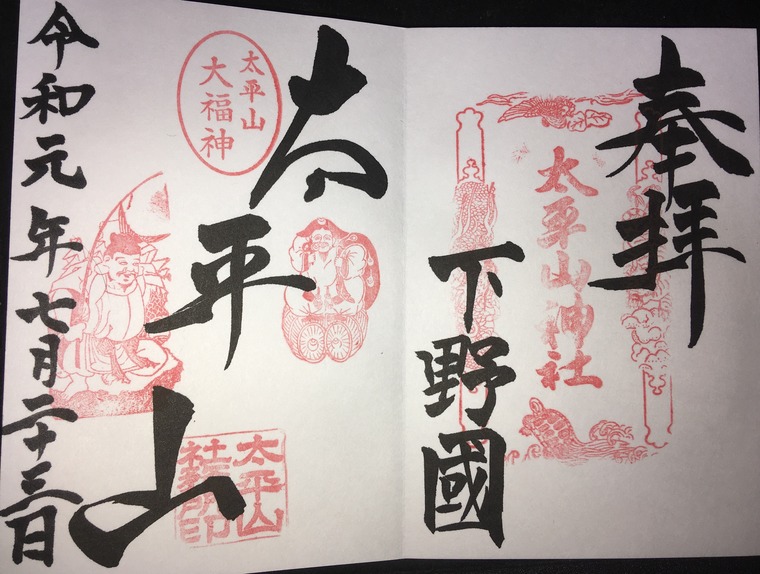 奉拝
太平山神社
下野國
太平山
太平山
大福神
太平山
社務所印
令和元年七月二十三日